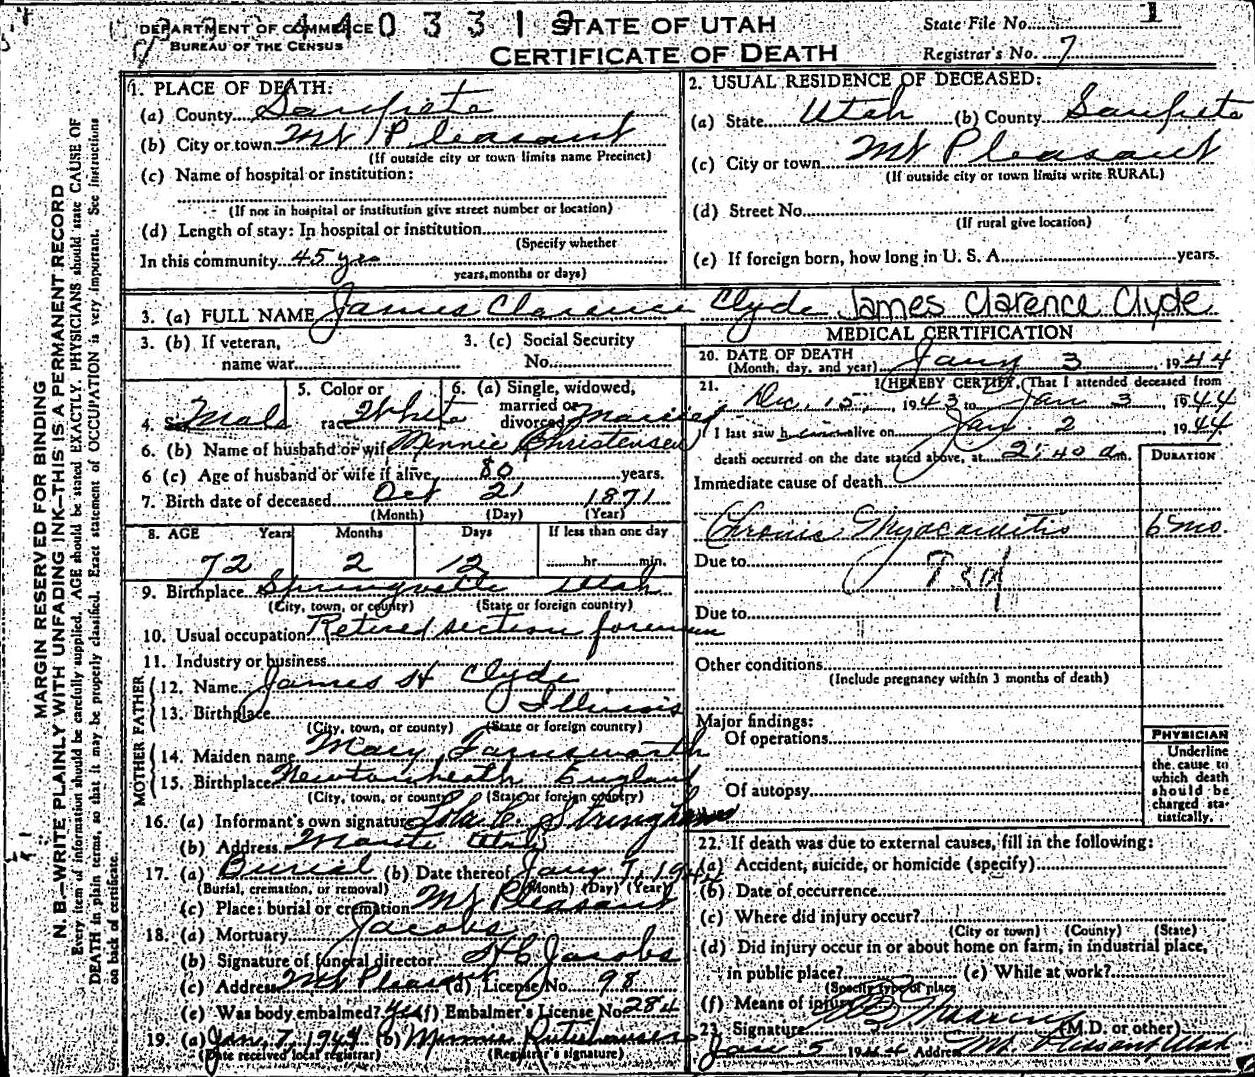 DEPARTMENT OF COMMERCE
BUREAU OF THE CENSUS
4 4 0 3 3 1 9
STATE OF UTAH
CERTIFICATE OF DEATH
State File No. 1
Registrar's No. 7
MARGIN RESERVED FOR BINDING
N. B.—WRITE PLAINLY WITH UNFADING INK—THIS IS A PERMANENT RECORD
Every item of information should be carefully supplied. AGE should be stated EXACTLY. PHYSICIANS should state CAUSE OF
DEATH in plain terms, so that it may be properly classified. Exact statement of OCCUPATION is very important. See instructions
on back of certificate.
1. PLACE OF DEATH:
(a) County Sanpete
(b) City or town Mt Pleasant
(If outside city or town limits name Precinct)
(c) Name of hospital or institution:
(If not in hospital or institution give street number or location)
(d) Length of stay: In hospital or institution
(Specify whether
In this community 45 yrs
years, months or days)
2. USUAL RESIDENCE OF DECEASED:
(a) State Utah (b) County Sanpete
(c) City or town Mt Pleasant
(If outside city or town limits write RURAL)
(d) Street No.
(If rural give location)
(e) If foreign born, how long in U. S. A. years.
3. (a) FULL NAME James Clarence Clyde James Clarence Clyde
3. (b) If veteran, name war
3. (c) Social Security No.
4. Sex Male
5. Color or race White
6. (a) Single, widowed, married or divorced Married
6. (b) Name of husband or wife Minnie Christensen
6 (c) Age of husband or wife if alive 80 years.
7. Birth date of deceased Oct 21 1871
(Month) (Day) (Year)
8. AGE Years Months Days If less than one day
72 2 12 hr. min.
9. Birthplace Springville Utah
(City, town, or county) (State or foreign country)
10. Usual occupation Retired section foreman
11. Industry or business
FATHER
12. Name James H Clyde
13. Birthplace Illinois
(City, town, or county) (State or foreign country)
MOTHER
14. Maiden name Mary Farnsworth
15. Birthplace Newtonheath England
(City, town, or county) (State or foreign country)
16. (a) Informant's own signature Stringham
(b) Address Manti Utah
17. (a) Burial (b) Date thereof Jany 7, 1944
(Burial, cremation, or removal) (Month) (Day) (Year)
(c) Place: burial or cremation Mt Pleasant
18. (a) Mortuary Jacobs
(b) Signature of funeral director H C Jacobs
(c) Address Mt Pleasant (d) License No. 98
(e) Was body embalmed? Yes (f) Embalmer's License No 284
19. (a) Jan 7, 1944 (b) Minnie
(Date received local registrar) (Registrar's signature)
MEDICAL CERTIFICATION
20. DATE OF DEATH
(Month, day, and year) Jany 3, 1944
21. I HEREBY CERTIFY, That I attended deceased from
Dec. 15, 1943 to Jan 3, 1944
I last saw h alive on Jan. 2 1944
death occurred on the date stated above, at 2:40 am.
DURATION
Immediate cause of death
Chronic Myocarditis 6 mo.
Due to
Due to
Other conditions
(Include pregnancy within 3 months of death)
Major findings:
Of operations
Of autopsy
PHYSICIAN
Underline
the cause to
which death
should be
charged sta-
tistically.
22. If death was due to external causes, fill in the following:
(a) Accident, suicide, or homicide (specify)
(b) Date of occurrence
(c) Where did injury occur?
(City or town) (County) (State)
(d) Did injury occur in or about home on farm, in industrial place,
in public place? (e) While at work?
(Specify type of place
(f) Means of injury
23. Signature (M.D. or other)
Jan 5 1944 Address Mt Pleasant Utah